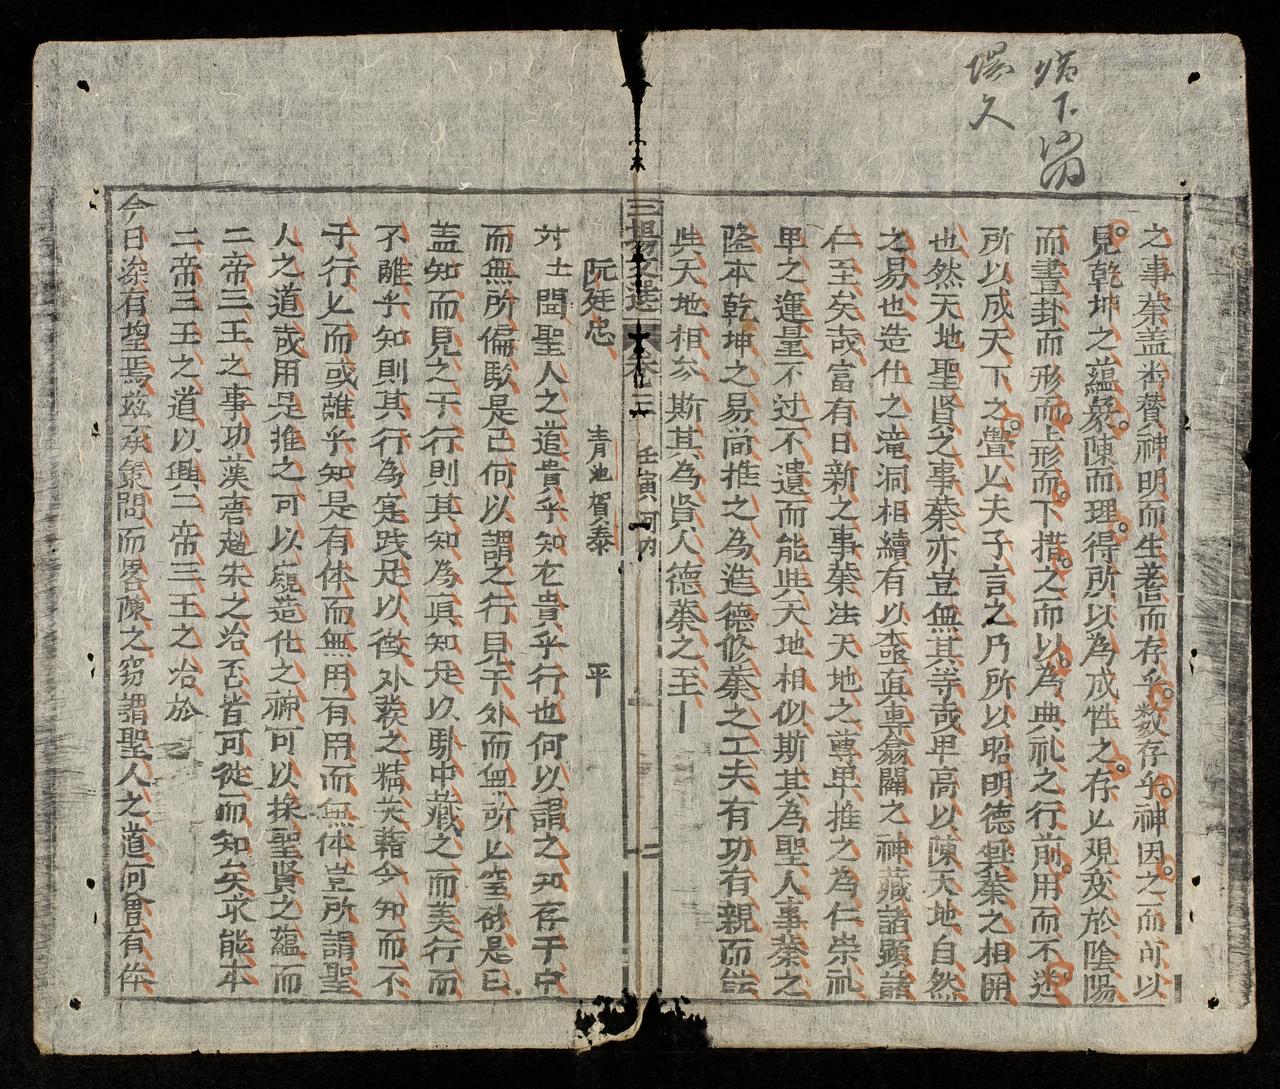 之事業盖出賛神明而生蓍而存乎数存乎神因之而可以
見乾坤之藴彖陳而理得所以為成性之存以現爻於陰陽
而畫卦而形而上形而下措之而以為典礼之行前用而不迷
所以成天下之亹以夫子言之乃所以昭明德業之相開
也然天地聖賢之事業亦豈無其等哉卑高以陳天地自然
之易也造化之澒洞相續有以直專翕闢之神藏諸顕諸
仁至矣哉富有日新之事業法天地之尊卑推之為仁崇礼
卑之運量不过不遺而能與天地相似斯其為聖人事業之
隆本乾坤之易简推之為進德修業之工夫有功有親而能
與天地相参斯其為賢人德業之至
三場文選 卷三 壬寅 河内
阮廷忠 青池賀泰 平
对士聞聖人之道貴乎知尤貴乎行也何以謂之知存于中
而無所偏馭是已何以謂之行見于外而無所以空 是已
盖知而見之于行則其知為真知足以馭中藏之而美行而
不離乎知則其行為寔践足以徵外発之精英藉令知而不
于行以而或離乎知是有体而無用有用而無体豈所謂聖
人之道哉用是推之可以窺造化之神可以探聖賢之藴而
二帝三王之事功漢唐趙宋之治否皆可從而知矣求能本
二帝三王之道以興二帝三王之治於
今日深有望焉玆承策問而畧陳之窃謂聖人之道何曾有件